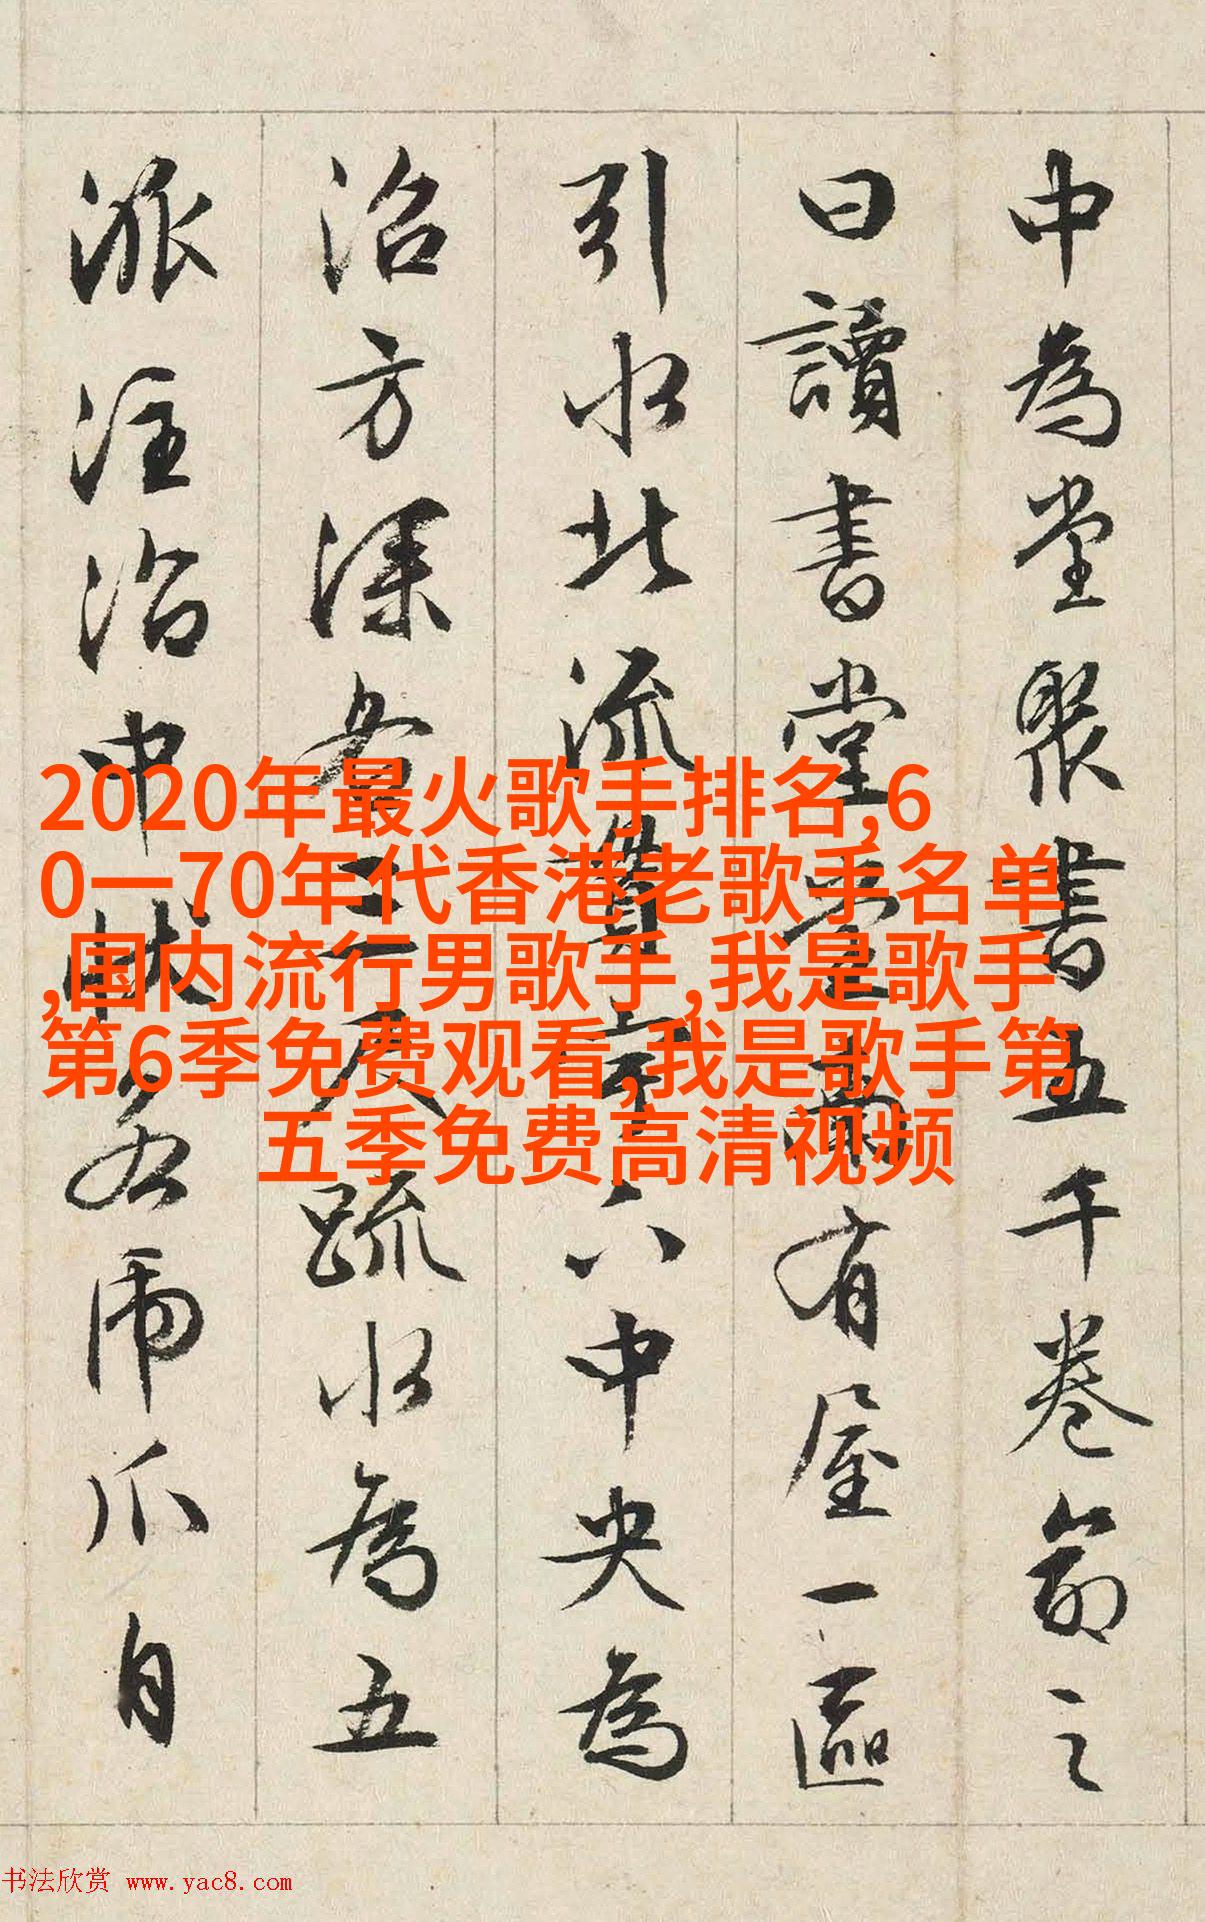 中為堂聚書五千卷命之
曰讀書堂堂南有屋一區
引水北流貫宇下中央為
沼方深各三尺疏水為五
派注沼中狀若虎爪自
2020年最火歌手排名,6
0一70年代香港老歌手名单
,国内流行男歌手,我是歌手
第6季免费观看,我是歌手第
五季免费高清视频
书法欣赏 www.yac8.com